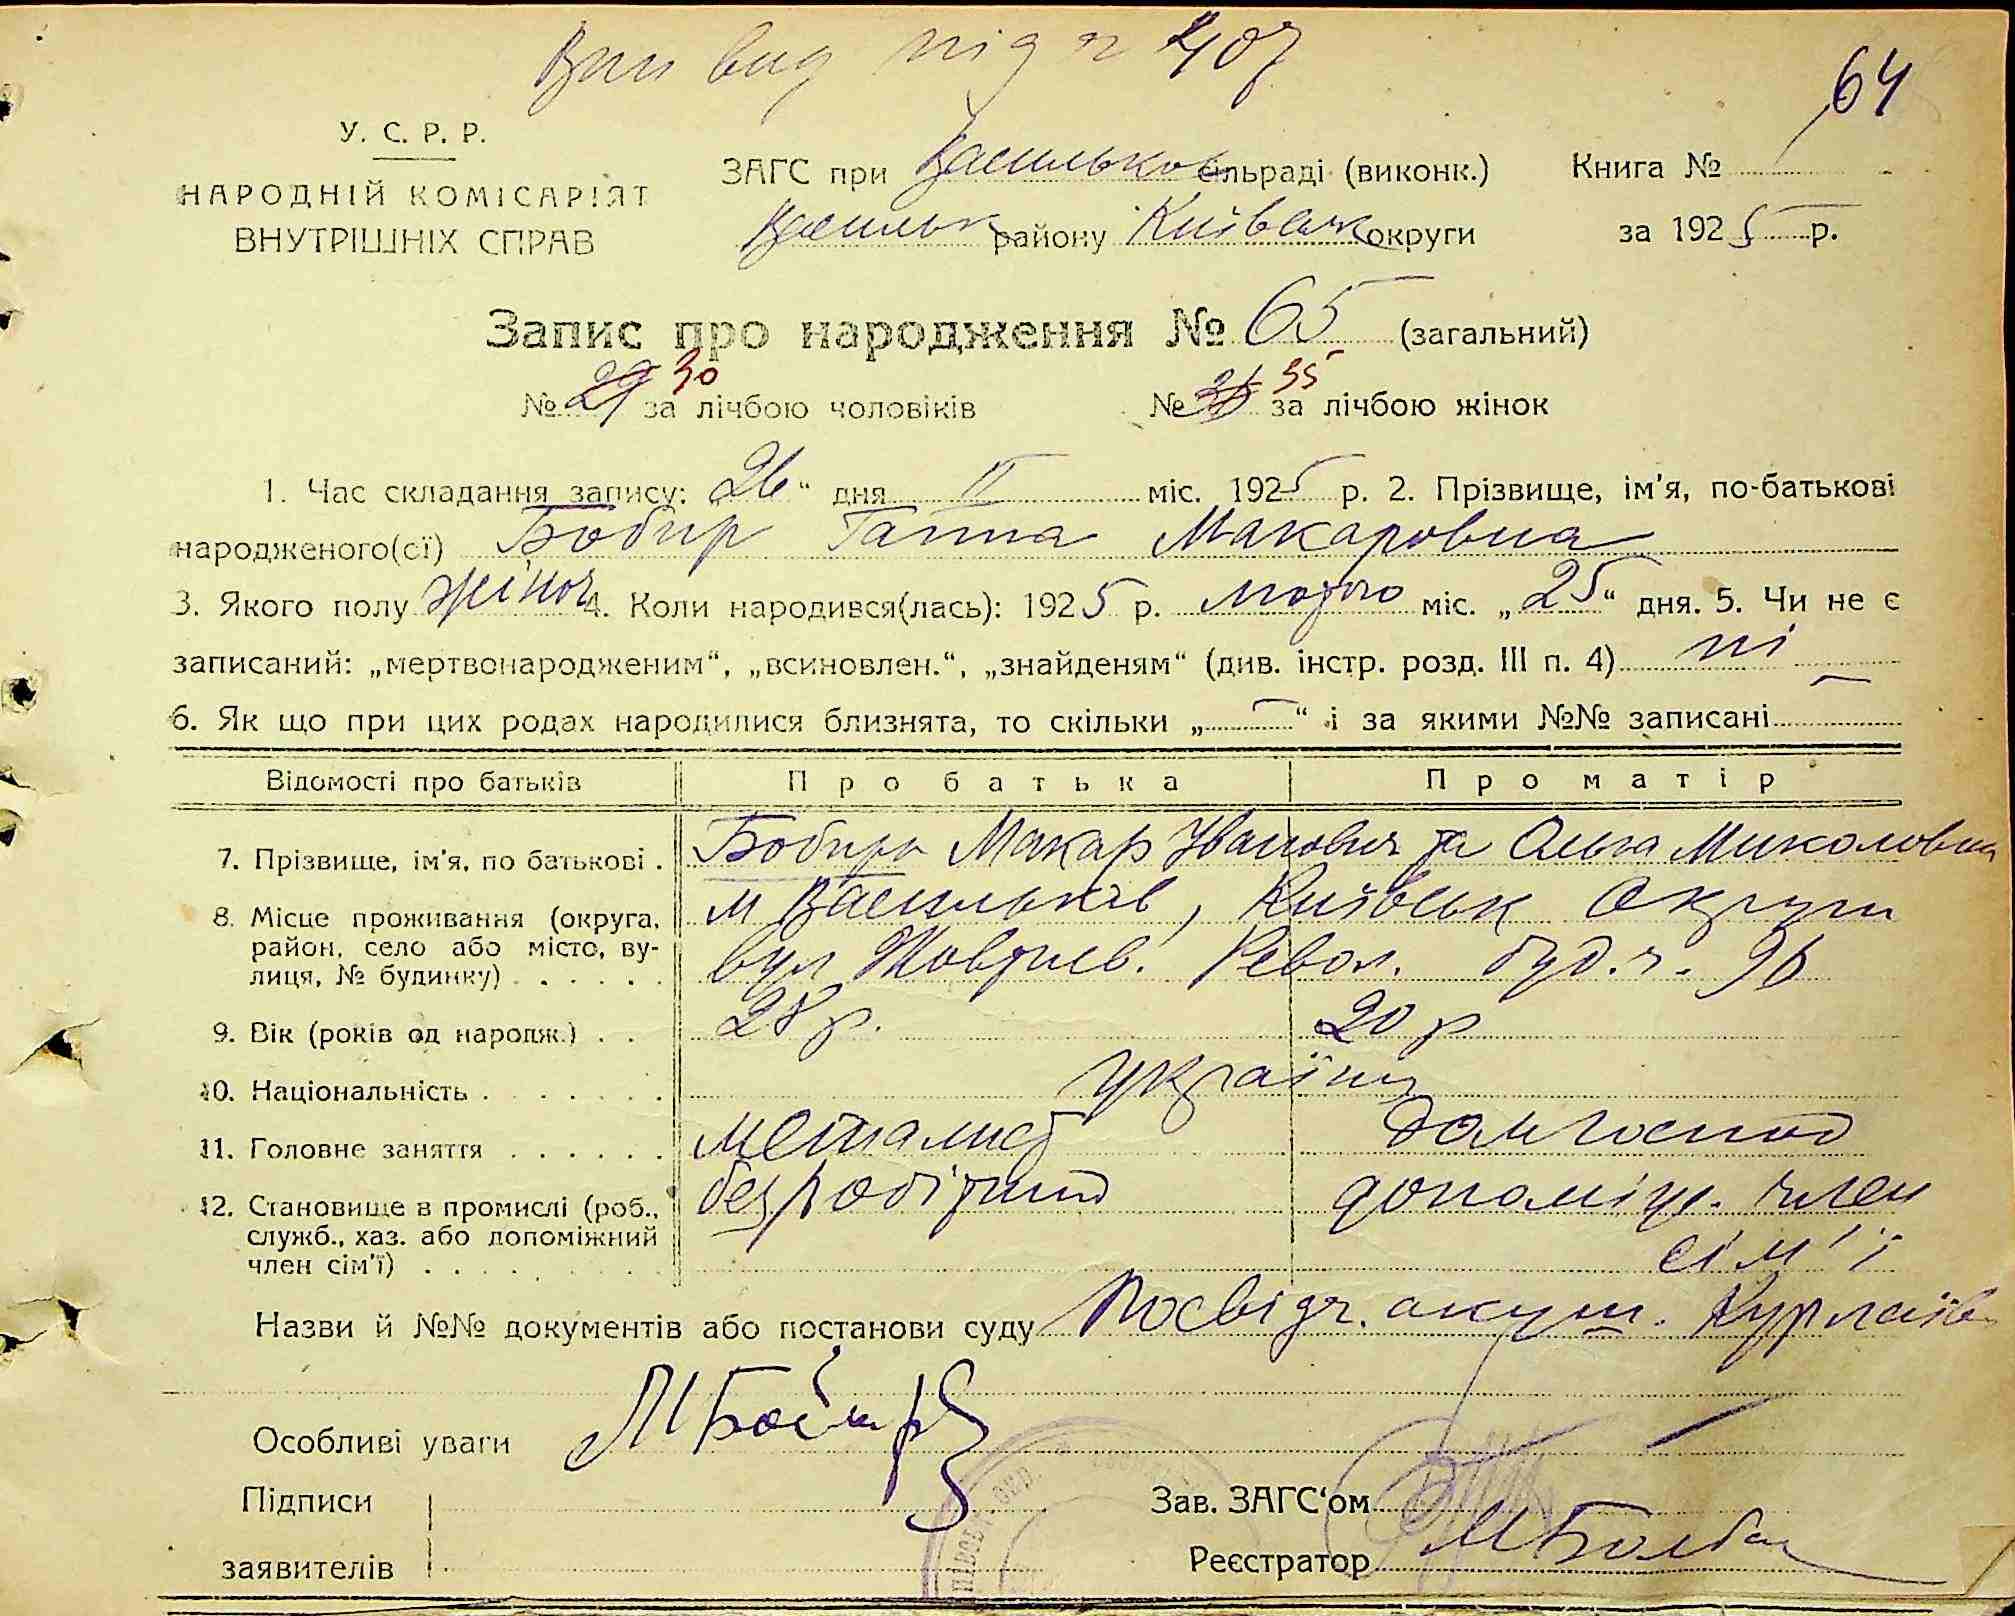 Вип вид під № 407
64
У. С. Р. Р.
НАРОДНІЙ КОМІСАРІЯТ
ВНУТРІШНІХ СПРАВ
ЗАГС при Васильков сільраді (виконк.)
Васильк району Київськ округи
Книга №
за 1925 р.
Запис про народження № 65 (загальний)
№ 29 30 за лічбою чоловіків № 35 за лічбою жінок
1. Час складання запису: 26 “ дня II міс. 1925 р. 2. Прізвище, ім'я, по-батькові
народженого(сї) Бобир Ганна Макаровна
3. Якого полу жіноч 4. Коли народився(лась): 1925 р. лютого міс. „25“ дня. 5. Чи не є
записаний: „мертвонародженим“, „всиновлен.“, „знайденям“ (див. інстр. розд. III п. 4) ні —
6. Як що при цих родах народилися близнята, то скільки „—“ і за якими №№ записані
Відомості про батьків Про батька Про матір
7. Прізвище, ім'я, по батькові . Бобирь Макар Іванович та Ольга Миколовна
8. Місце проживання (округа, район, село або місто, вулиця, № будинку) . . . . . . м Васильків, Київськ округи
вул Жовтнев. Револ. буд. ч. 96
9. Вік (років од народж.) . . 28 р. 20 р
10. Національність . . . . . . . україн
11. Головне заняття . . . . . . металист домгоспод
12. Становище в промислі (роб., служб., хаз. або допоміжний член сім'ї) . . . . . . . . безробітний допоміж. член
сім'ї
Назви й №№ документів або постанови суду Посвідч. акуш.
Особливі уваги
МБобир
Підписи
заявителів
Зав. ЗАГС‘ом
Реєстратор